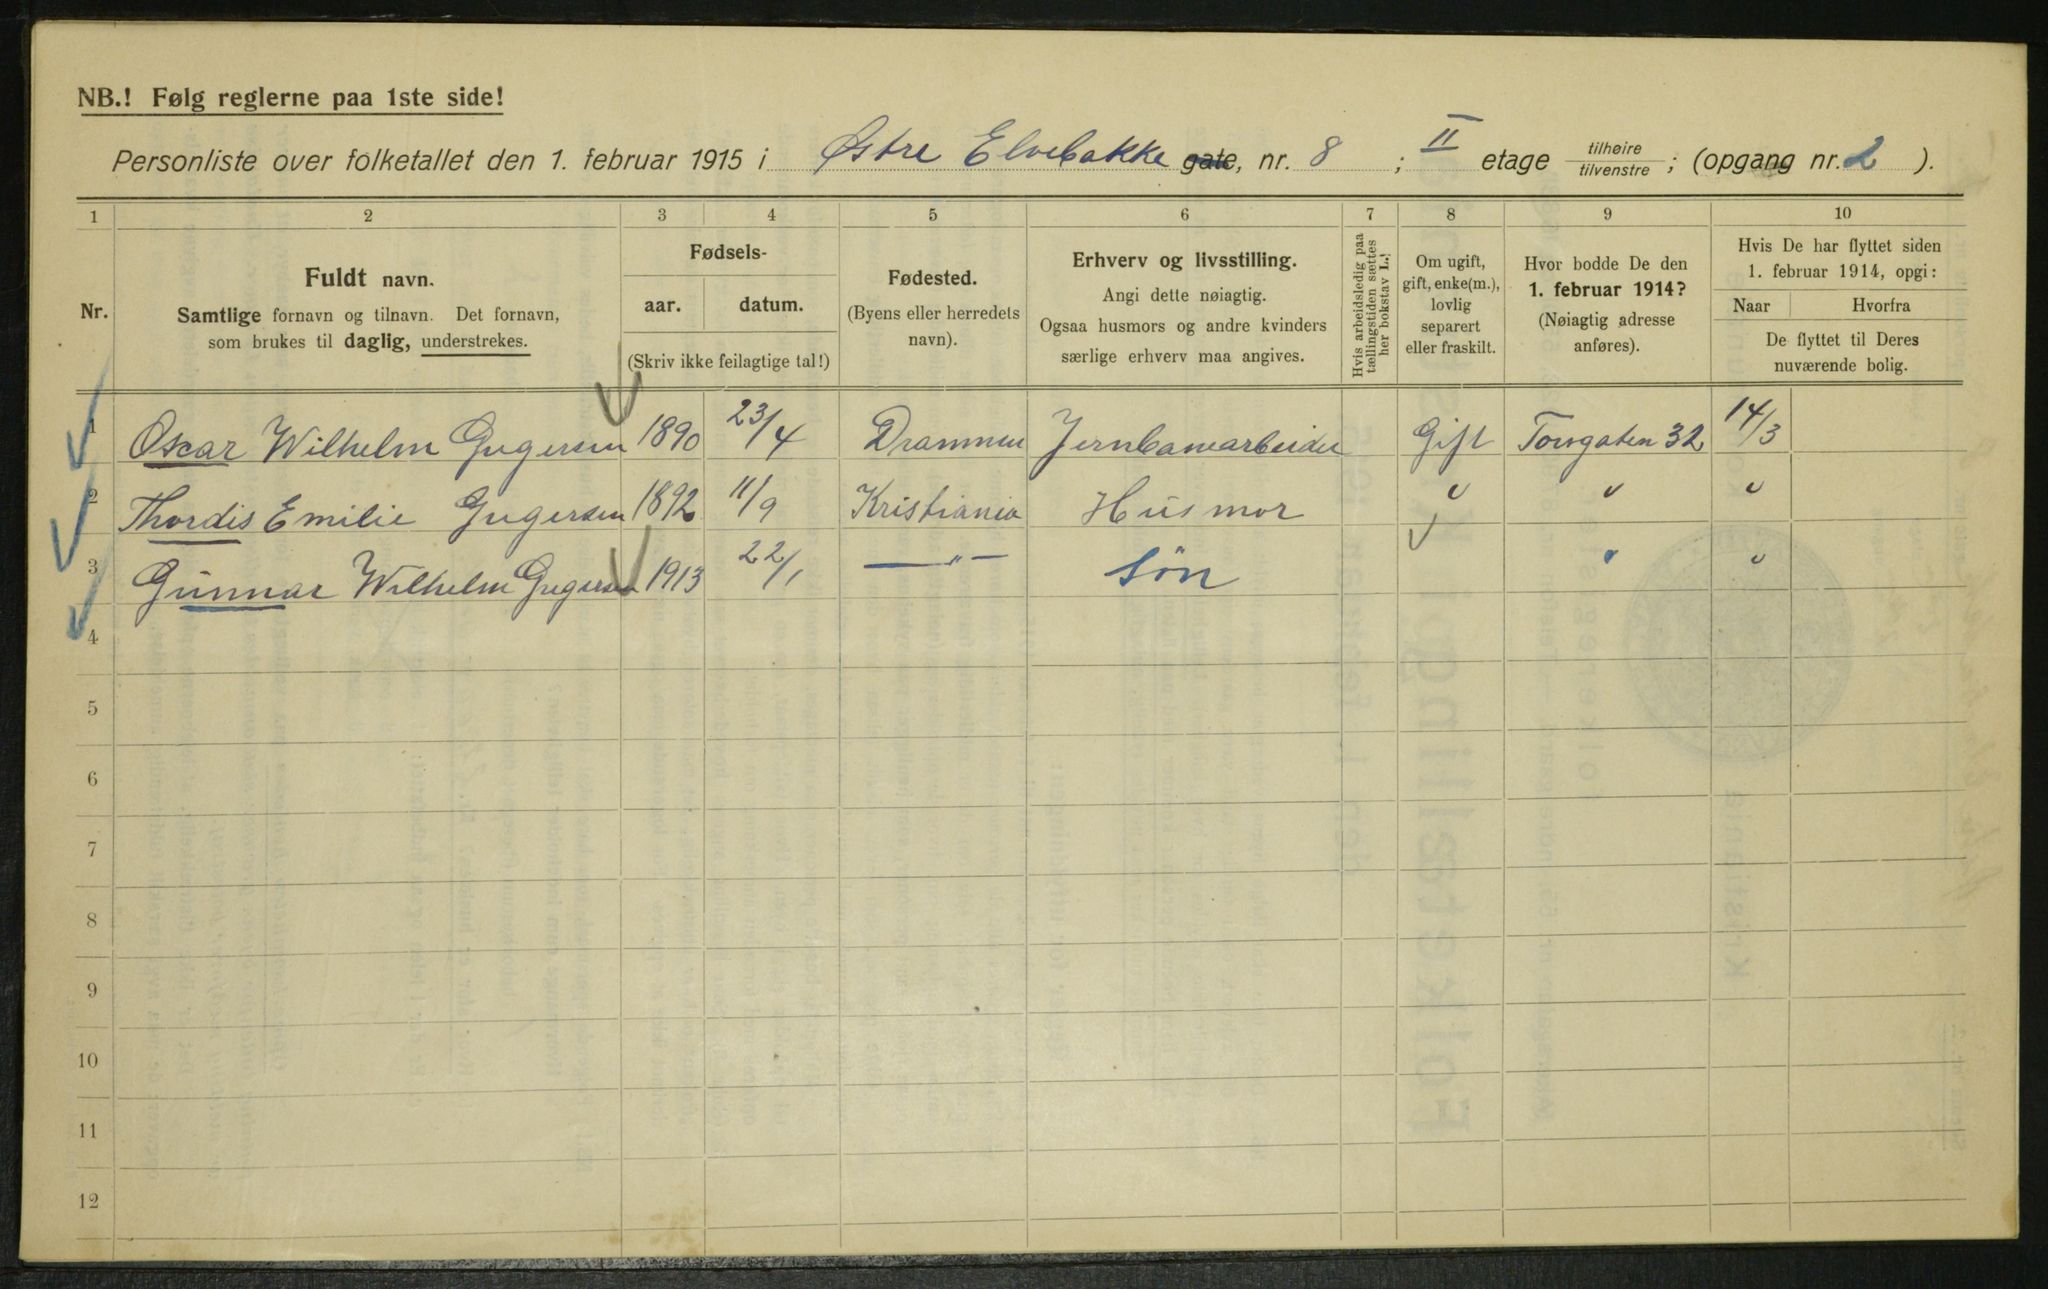 NB.! Følg reglerne paa 1ste side!
Personliste over folketallet den 1. februar 1915 i Østre Elvebakke gate, nr. 8 ; II etage tilhøire tilvenstre ; (opgang nr. 2 ).
1 2 3 4 5 6 7 8 9 10
Nr.
Fuldt navn.
Samtlige fornavn og tilnavn. Det fornavn,
som brukes til daglig, understrekes.
Fødsels-
aar. datum.
(Skriv ikke feilagtige tal!)
Fødested.
(Byens eller herredets
navn).
Erhverv og livsstilling.
Angi dette nøiagtig.
Ogsaa husmors og andre kvinders
særlige erhverv maa angives.
Hvis arbeidsledig paa
tællingstiden sættes
her bokstav L.!
Om ugift,
gift, enke(m.),
lovlig
separert
eller fraskilt.
Hvor bodde De den
1. februar 1914?
(Nøiagtig adresse
anføres).
Hvis De har flyttet siden
1. februar 1914, opgi:
Naar Hvorfra
De flyttet til Deres
nuværende bolig.
1 Oscar Wilhelm Gregersen 1890 23/4 Drammen Jernbanearbeider Gift Torvgaten 32 14/3
2 Thordis Emilie Gregersen 1892 11/9 Kristiania Husmor " " "
3 Gunnar Wilhelm Gregersen 1913 22/1 — " — Søn " "
4
5
6
7
8
9
10
11
12